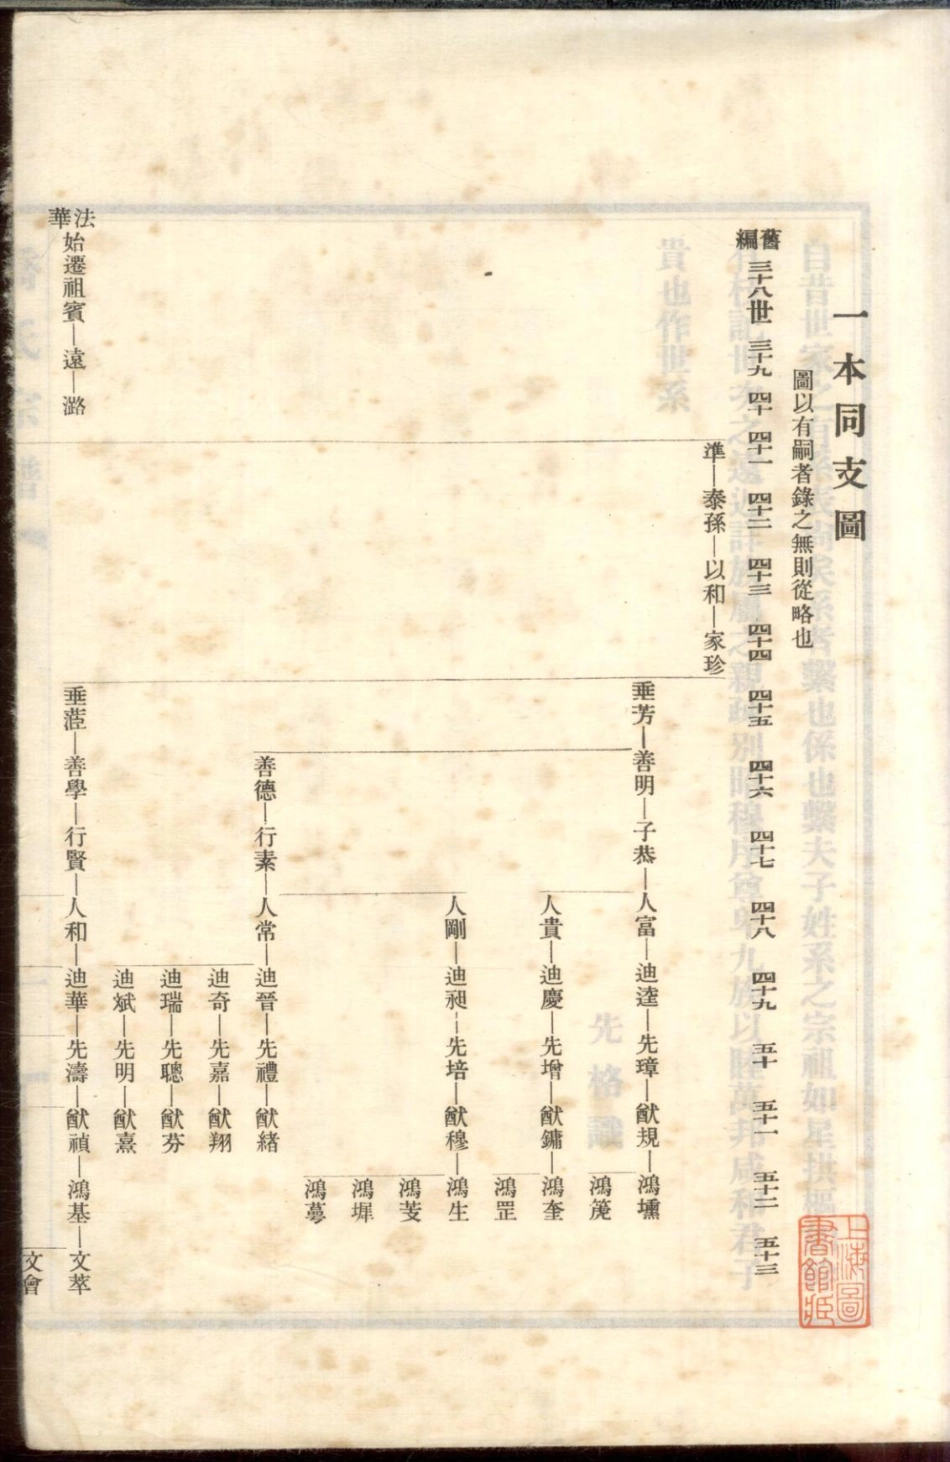 一本同支圖
圖以有嗣者錄之無則從略也
舊編 三十八世 三十九 四十 四十一 四十二 四十三 四十四 四十五 四十六 四十七 四十八 四十九 五十 五十一 五十二 五十三
準—泰孫—以和—家珍
垂芳—善明—子恭—人富—迪逵—先璋—猷規—鴻壎
鴻箎
人貴—迪慶—先增—猷鏞—鴻奎
鴻罡
人剛—迪昶—先培—猷穆—鴻生
鴻芰
鴻墀
鴻蓂
善德—行素—人常—迪晉—先禮—猷緒
迪奇—先嘉—猷翔
迪瑞—先聰—猷芬
迪斌—先明—猷熹
法華始遷祖賓—遠—潞
垂蒞—善學—行賢—人和—迪華—先濤—猷禎—鴻基—文萃
文會
上海圖書館藏